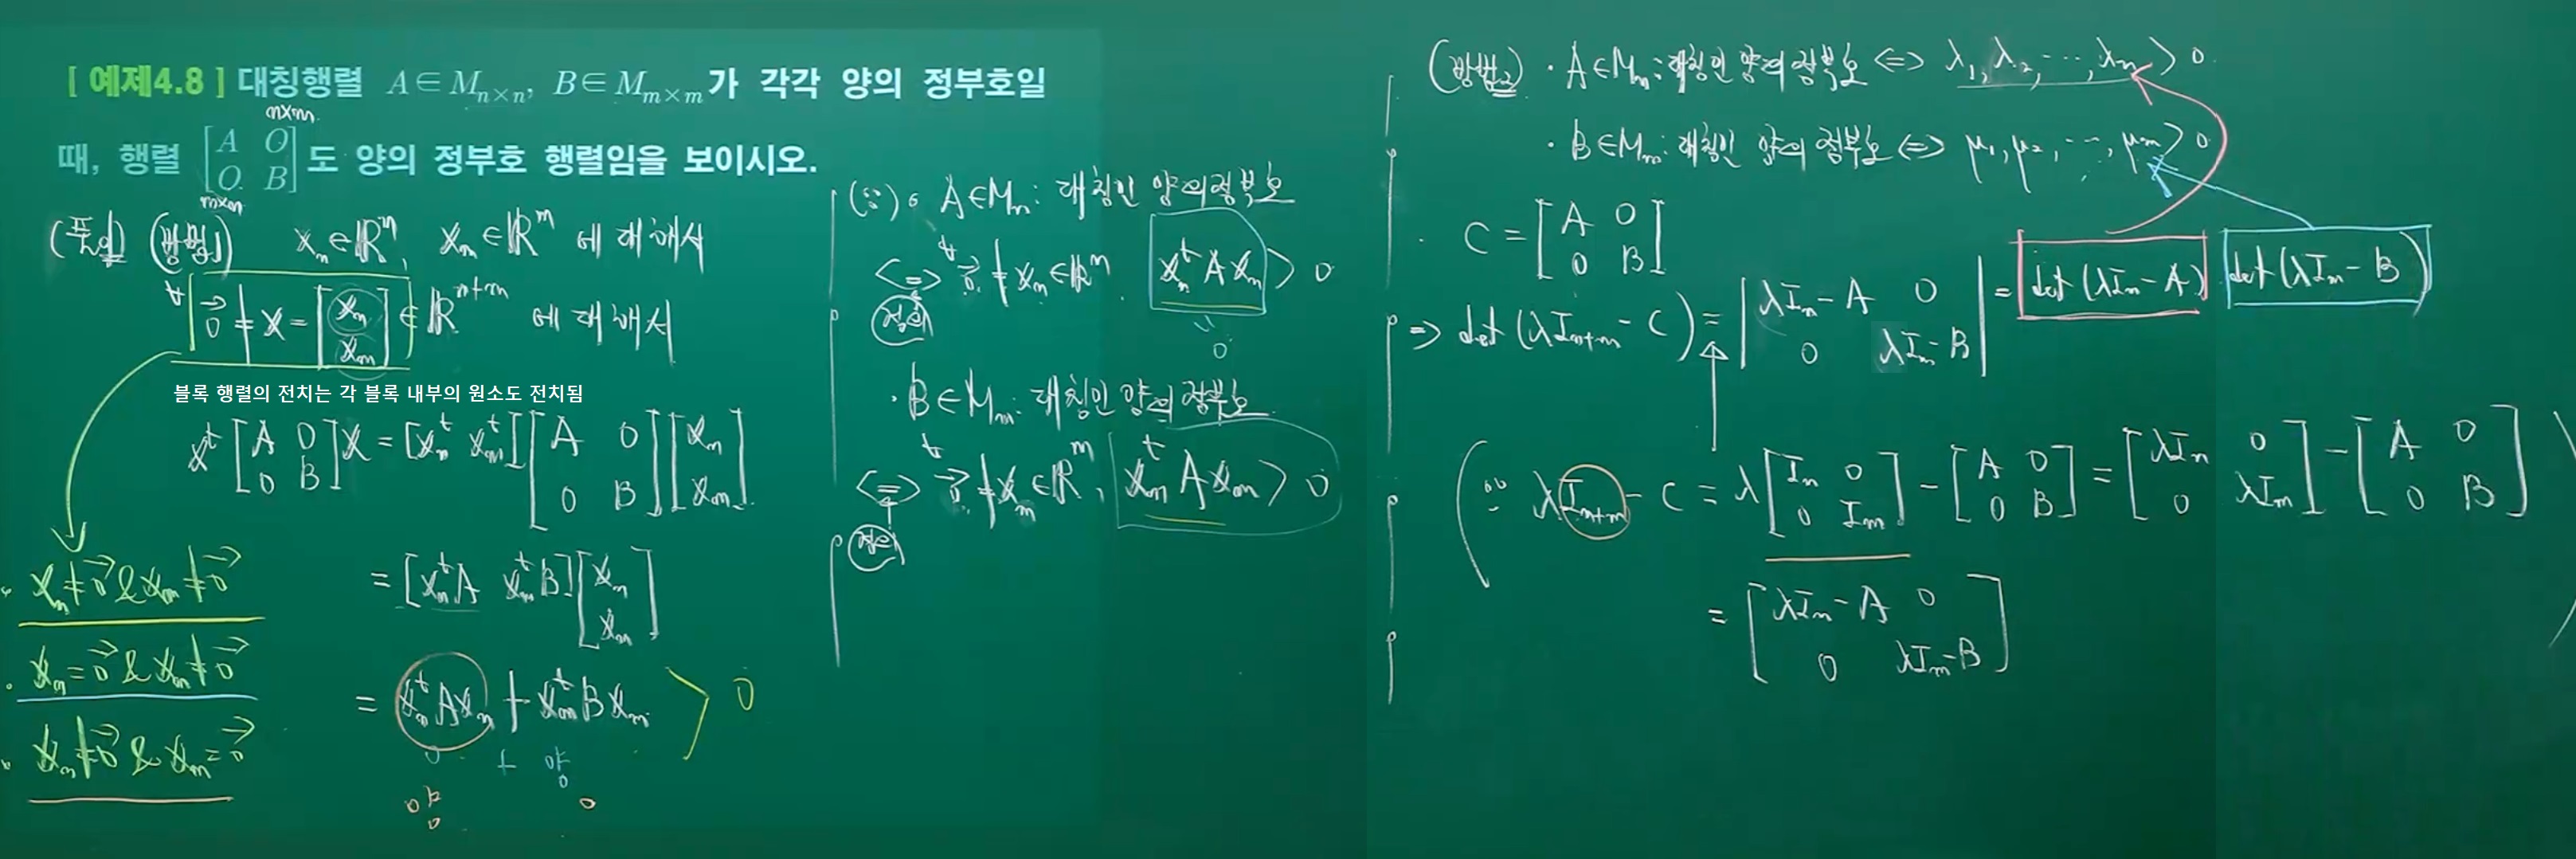 [ 예제4.8 ] 대칭행렬 A∈M_{n×n}, B∈M_{m×m}가 각각 양의 정부호일
n×m
때, 행렬 [A O; O B]도 양의 정부호 행렬임을 보이시오.
m×n
(풀이) (방법1) x_n∈ℝ^n, x_m∈ℝ^m 에 대해서
∀ 0⃗ ≠ x = [x_n; x_m] ∈ ℝ^{n+m} 에 대해서
블록 행렬의 전치는 각 블록 내부의 원소도 전치됨
x^t [A 0; 0 B] x = [x_n^t x_m^t] [A 0; 0 B] [x_n; x_m]
= [x_n^t A x_m^t B] [x_n; x_m]
= x_n^t A x_n + x_m^t B x_m > 0
0 + 양
양 0
· x_n ≠ 0⃗ & x_m ≠ 0⃗
· x_n = 0⃗ & x_m ≠ 0⃗
· x_n ≠ 0⃗ & x_m = 0⃗
(∵) · A∈M_n : 대칭인 양의 정부호
⟺ ∀ 0⃗ ≠ x_n∈ℝ^n, x_n^t A x_n > 0
정의
0
· B∈M_m : 대칭인 양의 정부호
⟺ ∀ 0⃗ ≠ x_m∈ℝ^m, x_m^t A x_m > 0
정의
(방법2) · A∈M_n : 대칭인 양의 정부호 ⟺ λ_1, λ_2, ⋯, λ_n > 0
· B∈M_m : 대칭인 양의 정부호 ⟺ μ_1, μ_2, ⋯, μ_m > 0
· C = [A 0; 0 B]
⇒ det(λI_{n+m} - C) = |λI_n - A 0; 0 λI_m - B| = det(λI_n - A) det(λI_m - B)
(∵ λI_{n+m} - C = λ[I_n 0; 0 I_m] - [A 0; 0 B] = [λI_n 0; 0 λI_m] - [A 0; 0 B]
= [λI_n - A 0; 0 λI_m - B] )